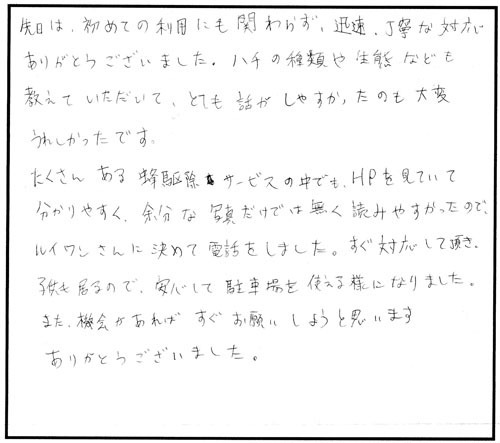 先日は、初めての利用にも関わらず、迅速、丁寧な対応
ありがとうございました。ハチの種類や生態なども
教えていただいて、とても話がしやすかったのも大変
うれしかったです。
たくさんある蜂駆除サービスの中でも、HPを見ていて
分かりやすく、余分な写真だけでは無く読みやすかったので、
ルイワンさんに決めて電話をしました。すぐ対応して頂き、
子供も居るので、安心して駐車場を使える様になりました。
また、機会があればすぐお願いしようと思います
ありがとうございました。